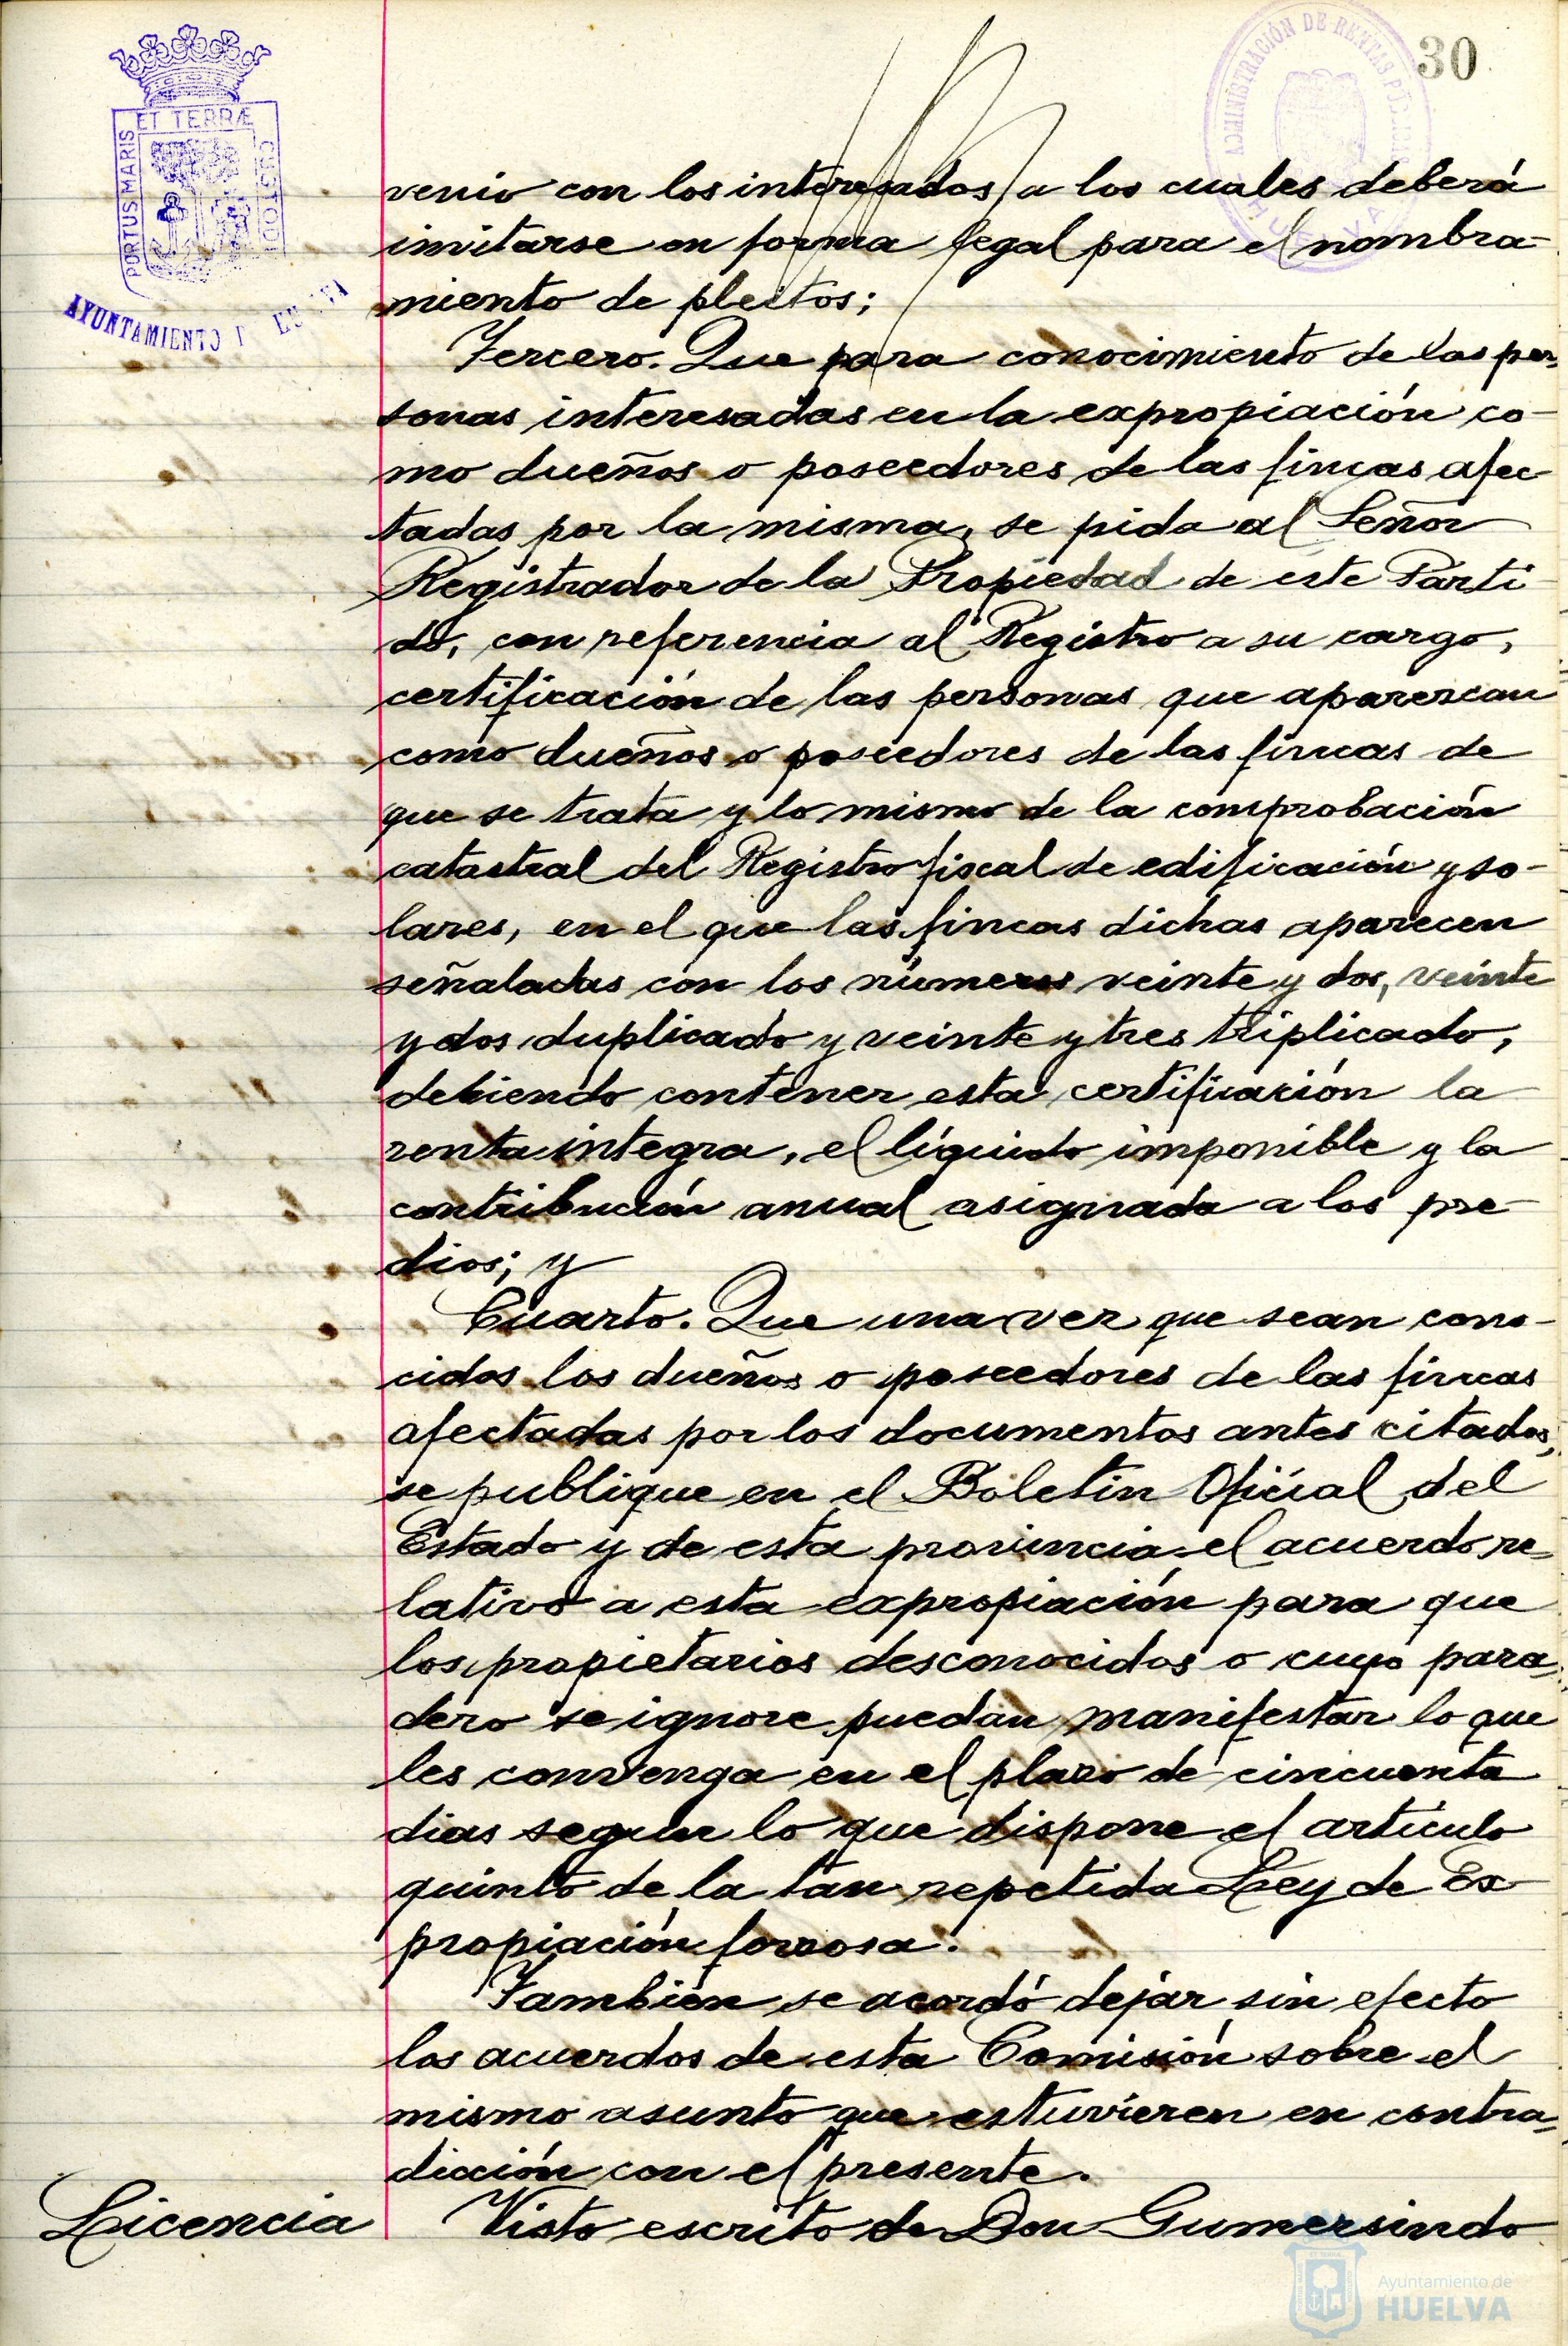 30
ADMINISTRACIÓN DE RENTAS
HUELVA
ET TERRÆ
PORTUS MARIS
CUSTODI
AYUNTAMIENTO
venio con los interesados a los cuales deberá
invitarse en forma legal para el nombra-
miento de pleitos;
Tercero. Que para conocimiento de las per-
sonas interesadas en la expropiación co-
mo dueños o poseedores de las fincas afec-
tadas por la misma, se pida al Señor
Registrador de la Propiedad de este Parti-
do, con referencia al Registro a su cargo,
certificación de las personas que aparezcan
como dueños o poseedores de las fincas de
que se trata y lo mismo de la comprobación
catastral del Registro fiscal de edificación y so-
lares, en el que las fincas dichas aparecen
señaladas con los números veinte y dos, veinte
y dos duplicado y veinte y tres triplicado,
debiendo contener esta certificación la
renta integra, el líquido imponible y la
contribución anual asignada a los pre-
dios; y
Cuarto. Que una vez que sean cono-
cidos los dueños o poseedores de las fincas
afectadas por los documentos antes citados,
se publique en el Boletin Oficial del
Estado y de esta provincia el acuerdo re-
lativo a esta expropiación para que
los propietarios desconocidos o cuyo para-
dero se ignore puedan manifestar lo que
les convenga en el plazo de cincuenta
dias segun lo que dispone el artículo
quinto de la tan repetida Ley de Ex-
propiación forzosa.
También se acordó dejar sin efecto
los acuerdos de esta Comisión sobre el
mismo asunto que estuvieren en contra-
dicción con el presente.
Licencia Visto escrito de Don Gumersindo
Ayuntamiento de
HUELVA